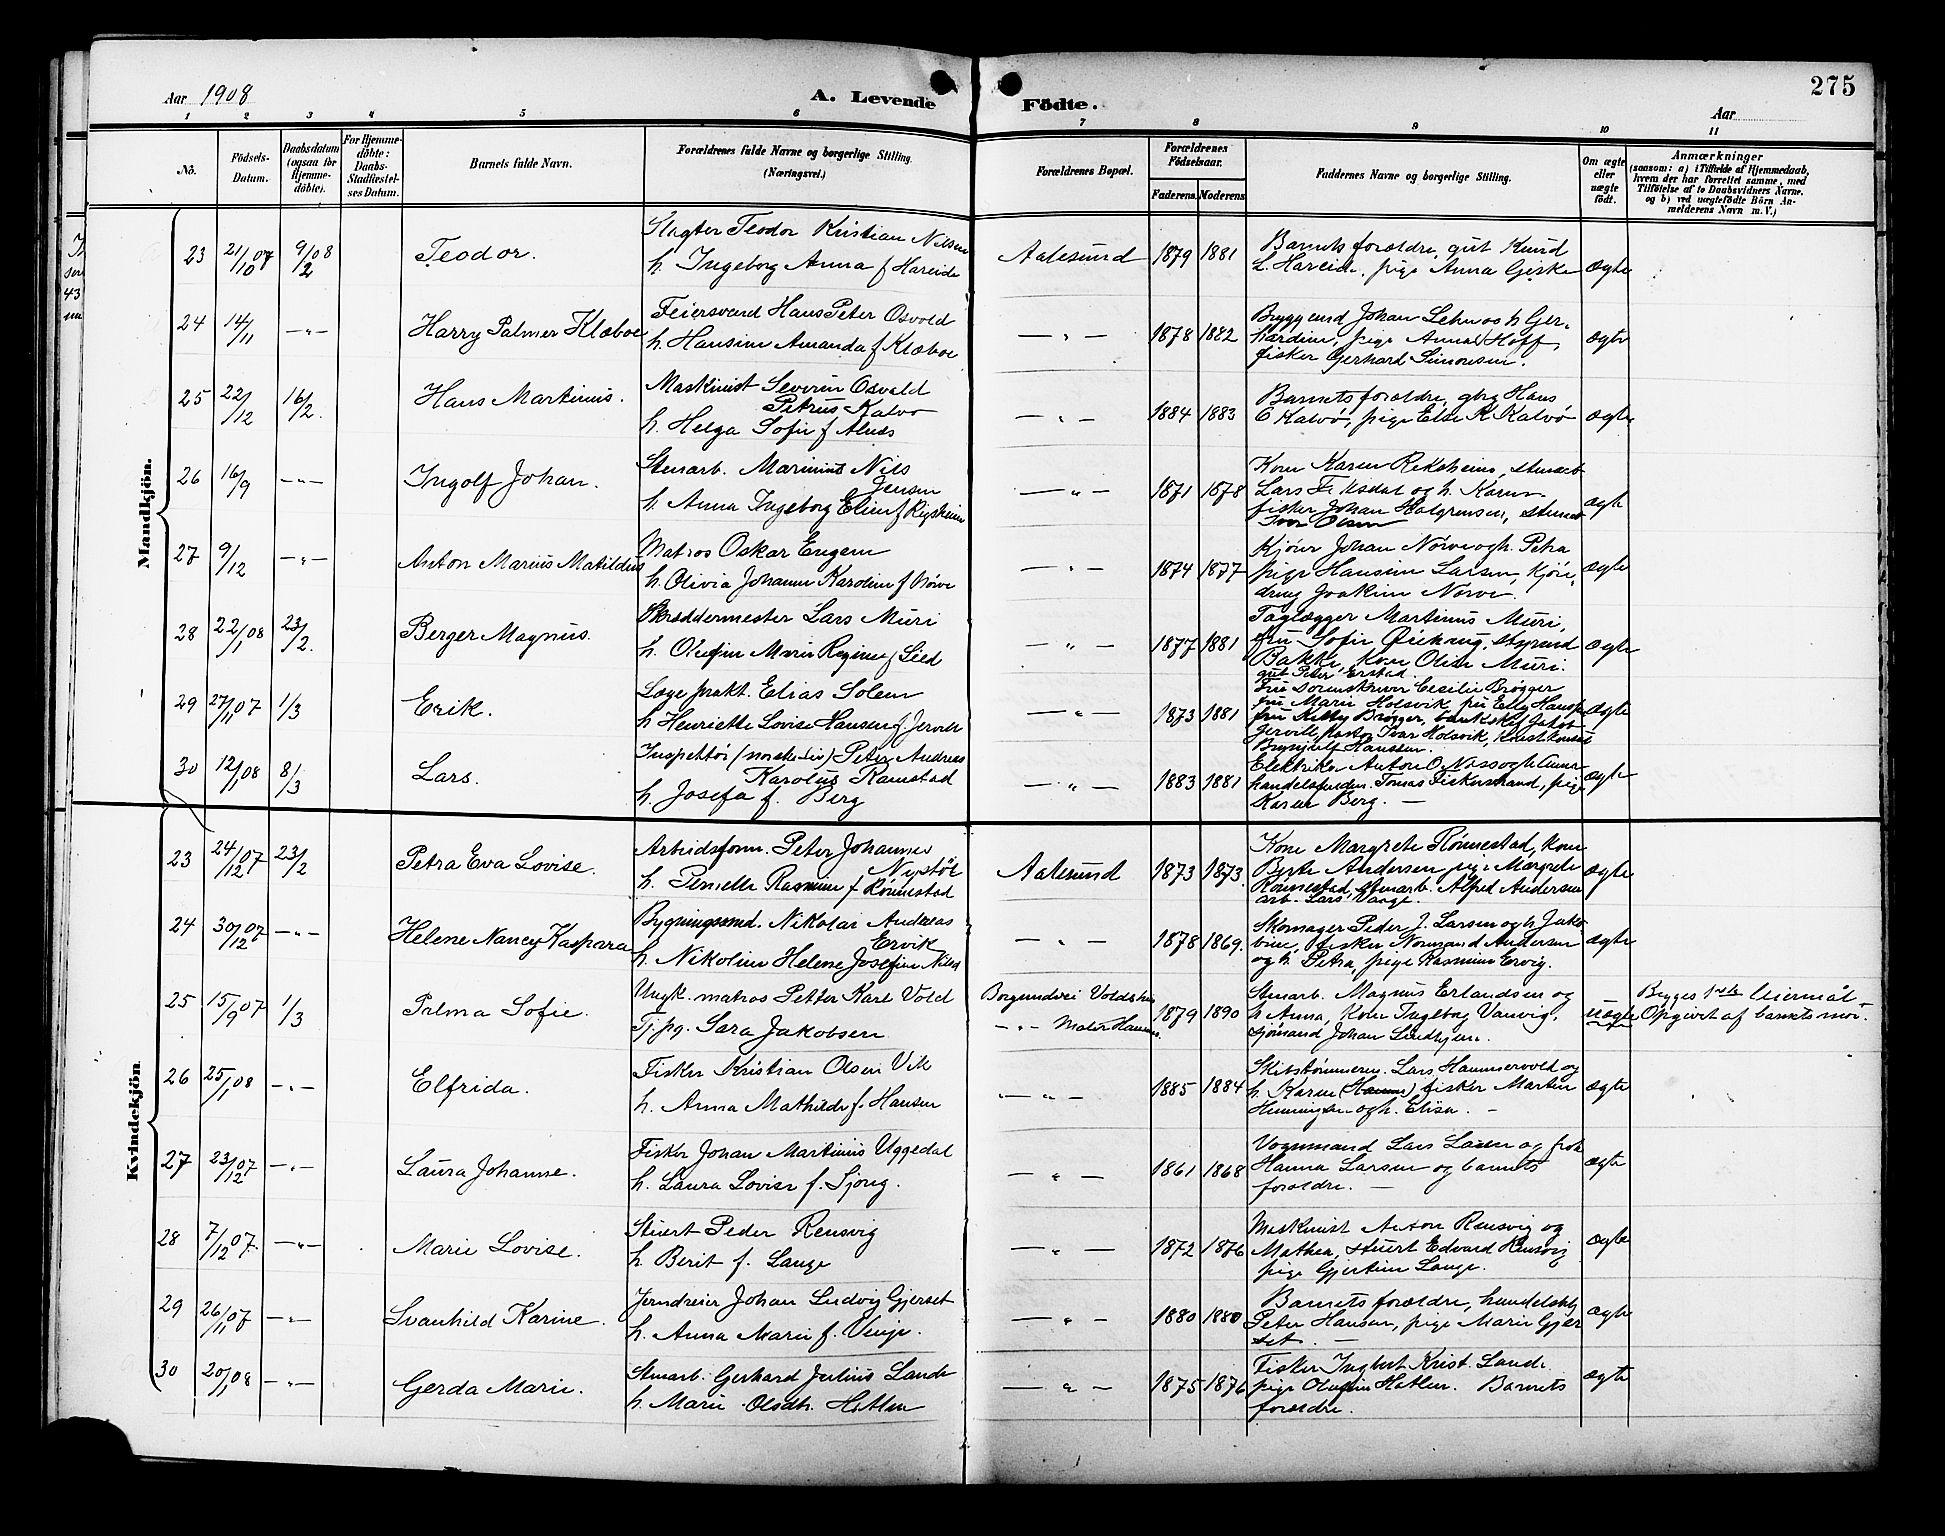 Aar 1908
A. Levende Födte.
Aar
275
1 2 3 4 5 6 7 8 9 10 11
No.
Födsels-Datum.
Daabsdatum (ogsaa for Hjemmedöbte).
For Hjemmedöbte: Daabs-Stadfæstelses Datum.
Barnets fulde Navn.
Forældrenes fulde Navne og borgerlige Stilling.
(Næringsvei.)
Forældrenes Bopæl.
Forældrenes Födselsaar.
Faderens. Moderens
Faddernes Navne og borgerlige Stilling.
Om ægte eller uægte födt.
Anmærkninger
(saasom: a) i Tilfælde af Hjemmedaab, hvem der har forrettet samme, med Tilföielse af to Daabsvidners Navne. og b) ved uægtefödte Börn Anmelderens Navn m. V.)
Mandkjön.
23 21/10 07 9/2 08 Teodor.
Slagter Teodor Kristian Nilsen
h. Ingeborg Anna f Hareide
Aalesund 1879 1881
Barnets forældre, gut Knud
L. Hareide, pige Anna Giske ægte
24 14/11 —"— Harry Palmer Klæboe
Feiersvend Hans Peter Osvold
h. Hansine Amanda f Klæboe
—"— 1878 1882
Johan h Ger-
hardine, pige Anna Hoff,
fisker Gerhard Simonsen. ægte
25 22/12 16/2. Hans Martinus.
Maskinist Severin Osvald
Petrus Kalvø
h. Helga Sofie f Alnes
—"— 1884 1883
Barnets forældre, gbr Hans
Kalvø, pige Else K Kalvø ægte
26 16/9 —"— Ingolf Johan.
Stenarb. Marinius Nils
Jensen
h. Anna Ingeborg Eline f Rigsheim
—"— 1871 1878
Kone Karen Reksheim, stenarb
Lars og h. Karen
fisker Johan stenarb
Ivar Olsen ægte
27 9/12 —"— Anton Marius Matildus
Matros Oskar Eugen
h. Olivia Johanne Karoline f Nørve
—"— 1874 1877
Kjörer Johan Nørve og h. Petra
pige Hansine Larsen, kjöre-
dreng Joakim Nørve. ægte
28 22/1 08 23/2. Berger Magnus.
Skræddermester Lars Muri
h. Olufine Marie Regine f Lied
—"— 1877 1881
Taglægger Martinus Muri,
fru Sofie styrmand
Bakke, kone Oline Muri
gut Peter Erstad. ægte
29 27/11 07 1/3 Erik.
Læge prakt. Elias Solem
h Henriette Lovise Hansen f Jervell
—"— 1873 1881
Fru sorenskriver Cecilie Brøgger
fru Marie Holsvik, frk Elly Hanssen
fru Kitty Brøgger, bankchef Jakob
Jervell, pastor Ivar Holsvik,
Brynjulf Hanssen. ægte
30 12/1 08 8/3 Lars.
Inspektör (norske Liv) Peter Andreas
Karolus Ramstad
h. Josefa f. Berg
—"— 1883 1881
Elektriker Anton O. Næss og h
handelsfuldm. Tomas Fiskerstrand, pige
Karen Berg. — ægte
Kvindekjön
23 24/12 07 23/2 Petra Eva Lovise.
Arbeidsform. Peter Johannes
Nystøl
h. Pernille Rasmine f Rønnestad
Aalesund 1873 1873.
Kone Margrete Rönnestad, kone
Byrte Andersen pige Margrete
Rönnestad, stenarb. Alfred Andersen
arb. Lars Vaage. ægte
24 30/12 07 —"— Helene Nancy Kaspara
Bygningssmed. Nikolai Andreas
Ervik
h. Nikoline Helene Josefine Nilsd
—"— 1878 1869.
Skomager Peder J. Larsen og h Jako-
bine, fisker Normand Andersen
og h. Petra, pige Rasmine Ervig. ægte
25 15/9 07 1/3 Palma Sofie.
Ungk. matros Petter Karl Vold
Tj.pg. Sara Jakobsen
Borgundvei
—"— 1879 1890
Stenarb. Magnus Erlandsen og
h Anna, Kone Ingeborg Vanvig,
sjömand Johan uægte
Begges 1ste leiermål —
Opgivet af barnets mor.
26 25/1 08 —"— Elfrida.
Fisker Kristian Olsen Vik
h. Anna Mathilde f. Hansen
—"— 1885 1884
Skibstømmerm. Lars Hammervold og
h. Karen fisker Martin
Henningsen og h. Elisa. — ægte
27 23/12 07 —"— Laura Johanne.
Fisker Johan Martinus Uggedal
h. Laura Lovise f. Sjong.
—"— 1861 1868
Vognmand Lars Larsen og frøk
Hanna Larsen og barnets
forældre. — ægte
28 7/12 07 —"— Marie Lovise.
Stuert Peder Rensvig
h Berit f. Lange
—"— 1872 1876
Maskinist Anton Rensvig og
Mathea, stuert Edvard Rensvig
pige Gjertine Lange. ægte
29 26/11 07 —"— Svanhild Karine.
Jerndreier Johan Ludvig Gjerset
h. Anna Marie f. Vinje.
—"— 1880 1880
Barnets forældre, handelsbtj
Peter Hansen, pige Marie Gjer
set. — ægte
30 20/1 08 —"— Gerda Marie.
Stenarb. Gerhard Julius Lande
h. Marie Olsdtr. Hatlen
—"— 1875 1876
Fisker Ingbert Krist. Lande.
pige Olufine Hatlen. Barnets
forældre. ægte